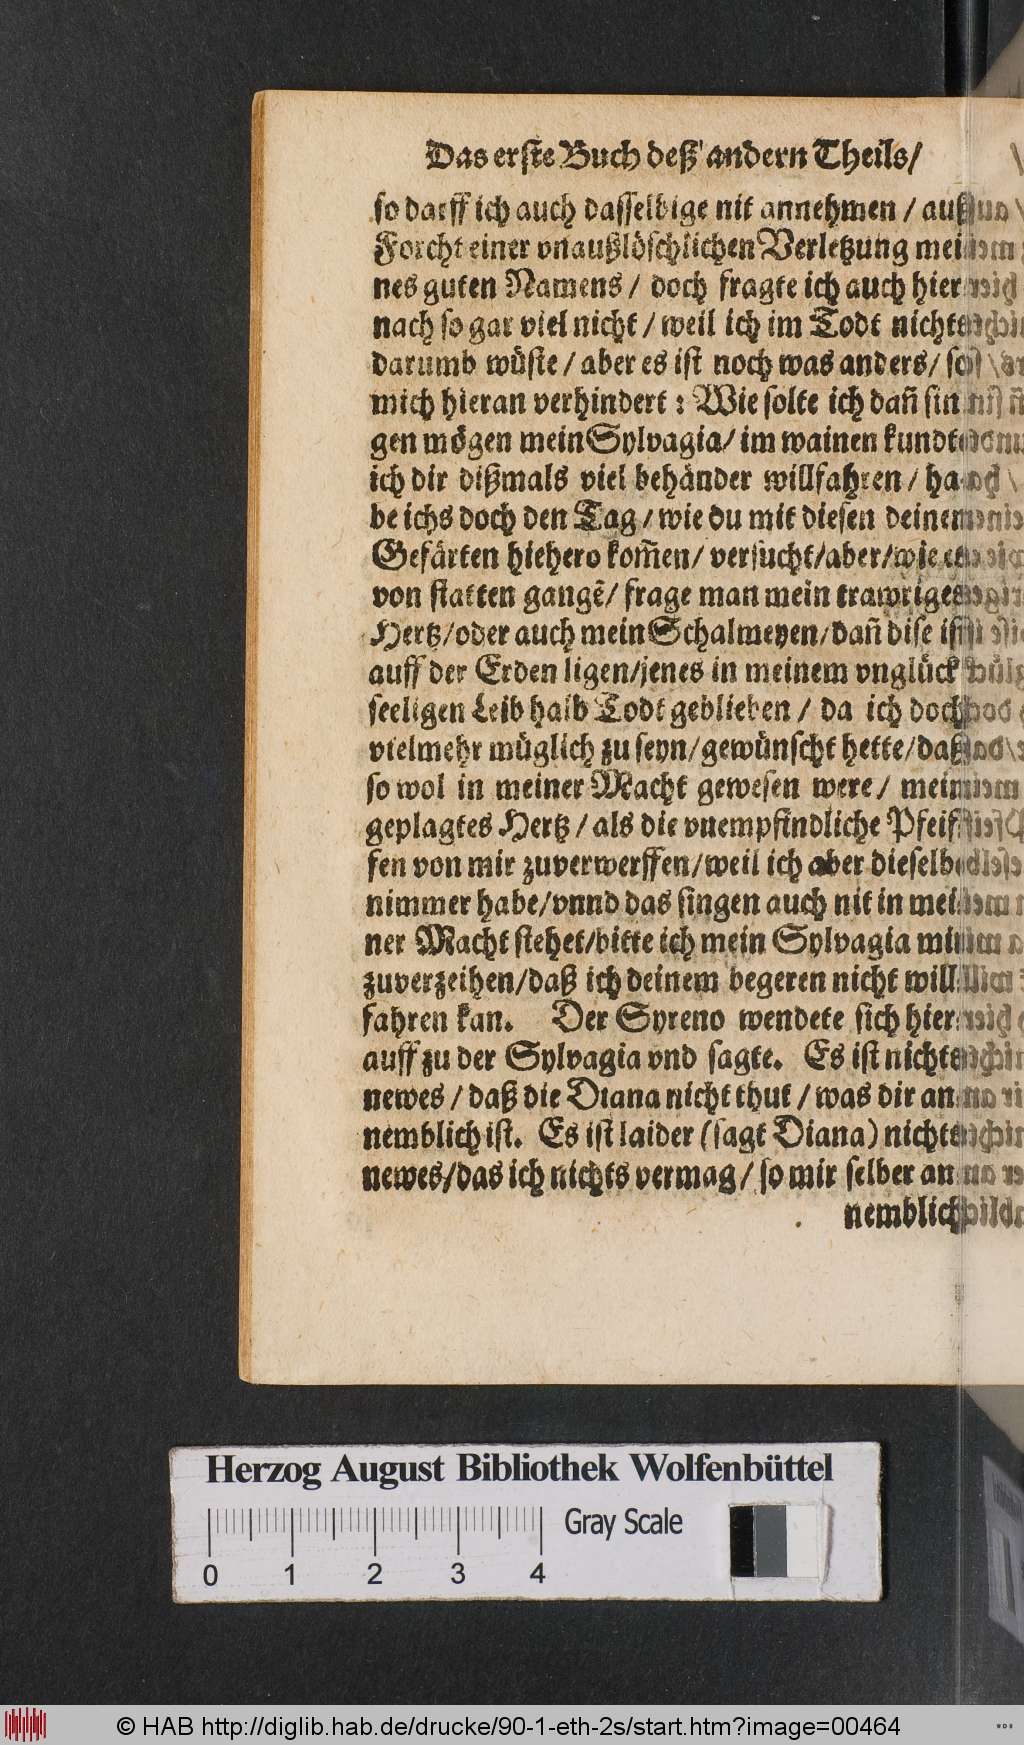 Das erste Buch deß andern Theils/
so darff ich auch dasselbige nit annehmen / auß
Forcht einer vnaußlöschlichen Verletzung mei-
nes guten Namens / doch fragte ich auch hier-
nach so gar viel nicht / weil ich im Todt nichts
darumb wüste / aber es ist noch was anders / so
mich hieran verhindert : Wie solte ich dañ sin-
gen mögen mein Sylvagia / im wainen kundt
ich dir dißmals viel behänder willfahren / ha-
be ichs doch den Tag / wie du mit diesen deinem
Gefärten hiehero kom̃en / versucht / aber / wie es
von statten gangẽ / frage man mein trawriges
Hertz / oder auch mein Schalmeyen / dañ dise ist
auff der Erden ligen / jenes in meinem vnglück-
seeligen Leib halb Todt geblieben / da ich doch
vielmehr müglich zu seyn / gewünscht hette / daß
so wol in meiner Macht gewesen were / mein
geplagtes Hertz / als die vnempfindliche Pfeif-
fen von mir zuverwerffen / weil ich aber dieselb
nimmer habe / vnnd das singen auch nit in mei-
ner Macht stehet / bitte ich mein Sylvagia mir
zuverzeihen / daß ich deinem begeren nicht will-
fahren kan. Der Syreno wendete sich hier-
auff zu der Sylvagia vnd sagte. Es ist nichts
newes / daß die Diana nicht thut / was dir an-
nemblich ist. Es ist laider (sagt Diana) nichts
newes / das ich nichts vermag / so mir selber an-
nemblich
Herzog August Bibliothek Wolfenbüttel
Gray Scale
0 1 2 3 4
© HAB http://diglib.hab.de/drucke/90-1-eth-2s/start.htm?image=00464